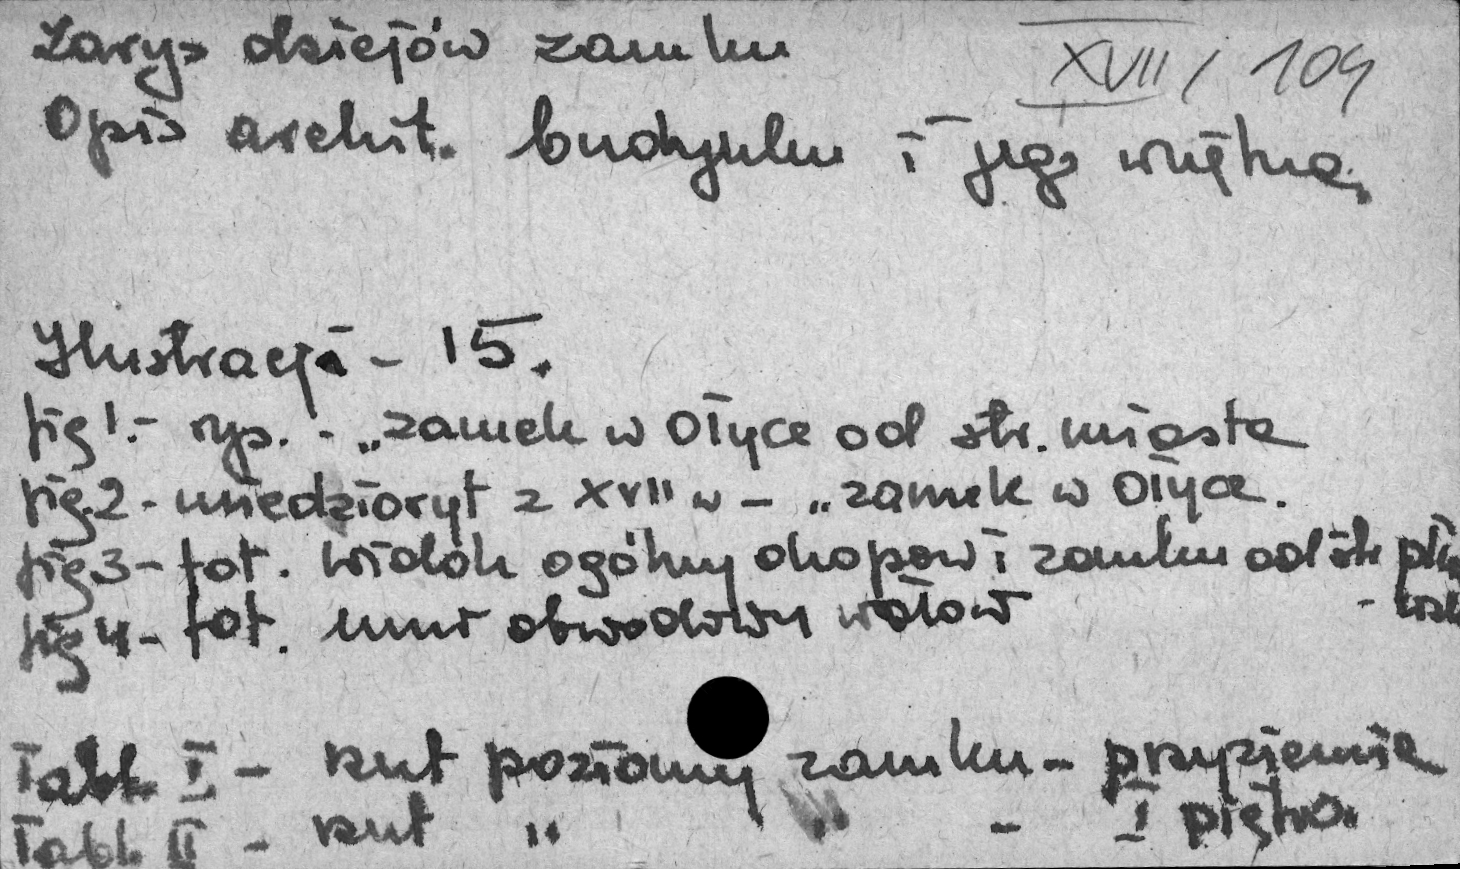 Zarys dziejów zamku
XVII / 104
Opis archit. budynku i jego wnętrza.
Ilustracji - 15.
fig 1. - rys. - „zamek w Ołyce od str. miasta
fig. 2 - miedzioryt z XVII w - „zamek w Ołyce.
fig 3 - fot. widok ogólny okopów i zamku od str
fig 4 - fot. mur obwodowy wałów
Tabl. I - rzut poziomy zamku - przyziemie
Tabl. II - rzut " " - I piętro.